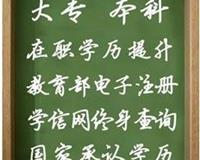 大专 本科
在职学历提升
教育部电子注册
学信网终身查询
国家承认学历